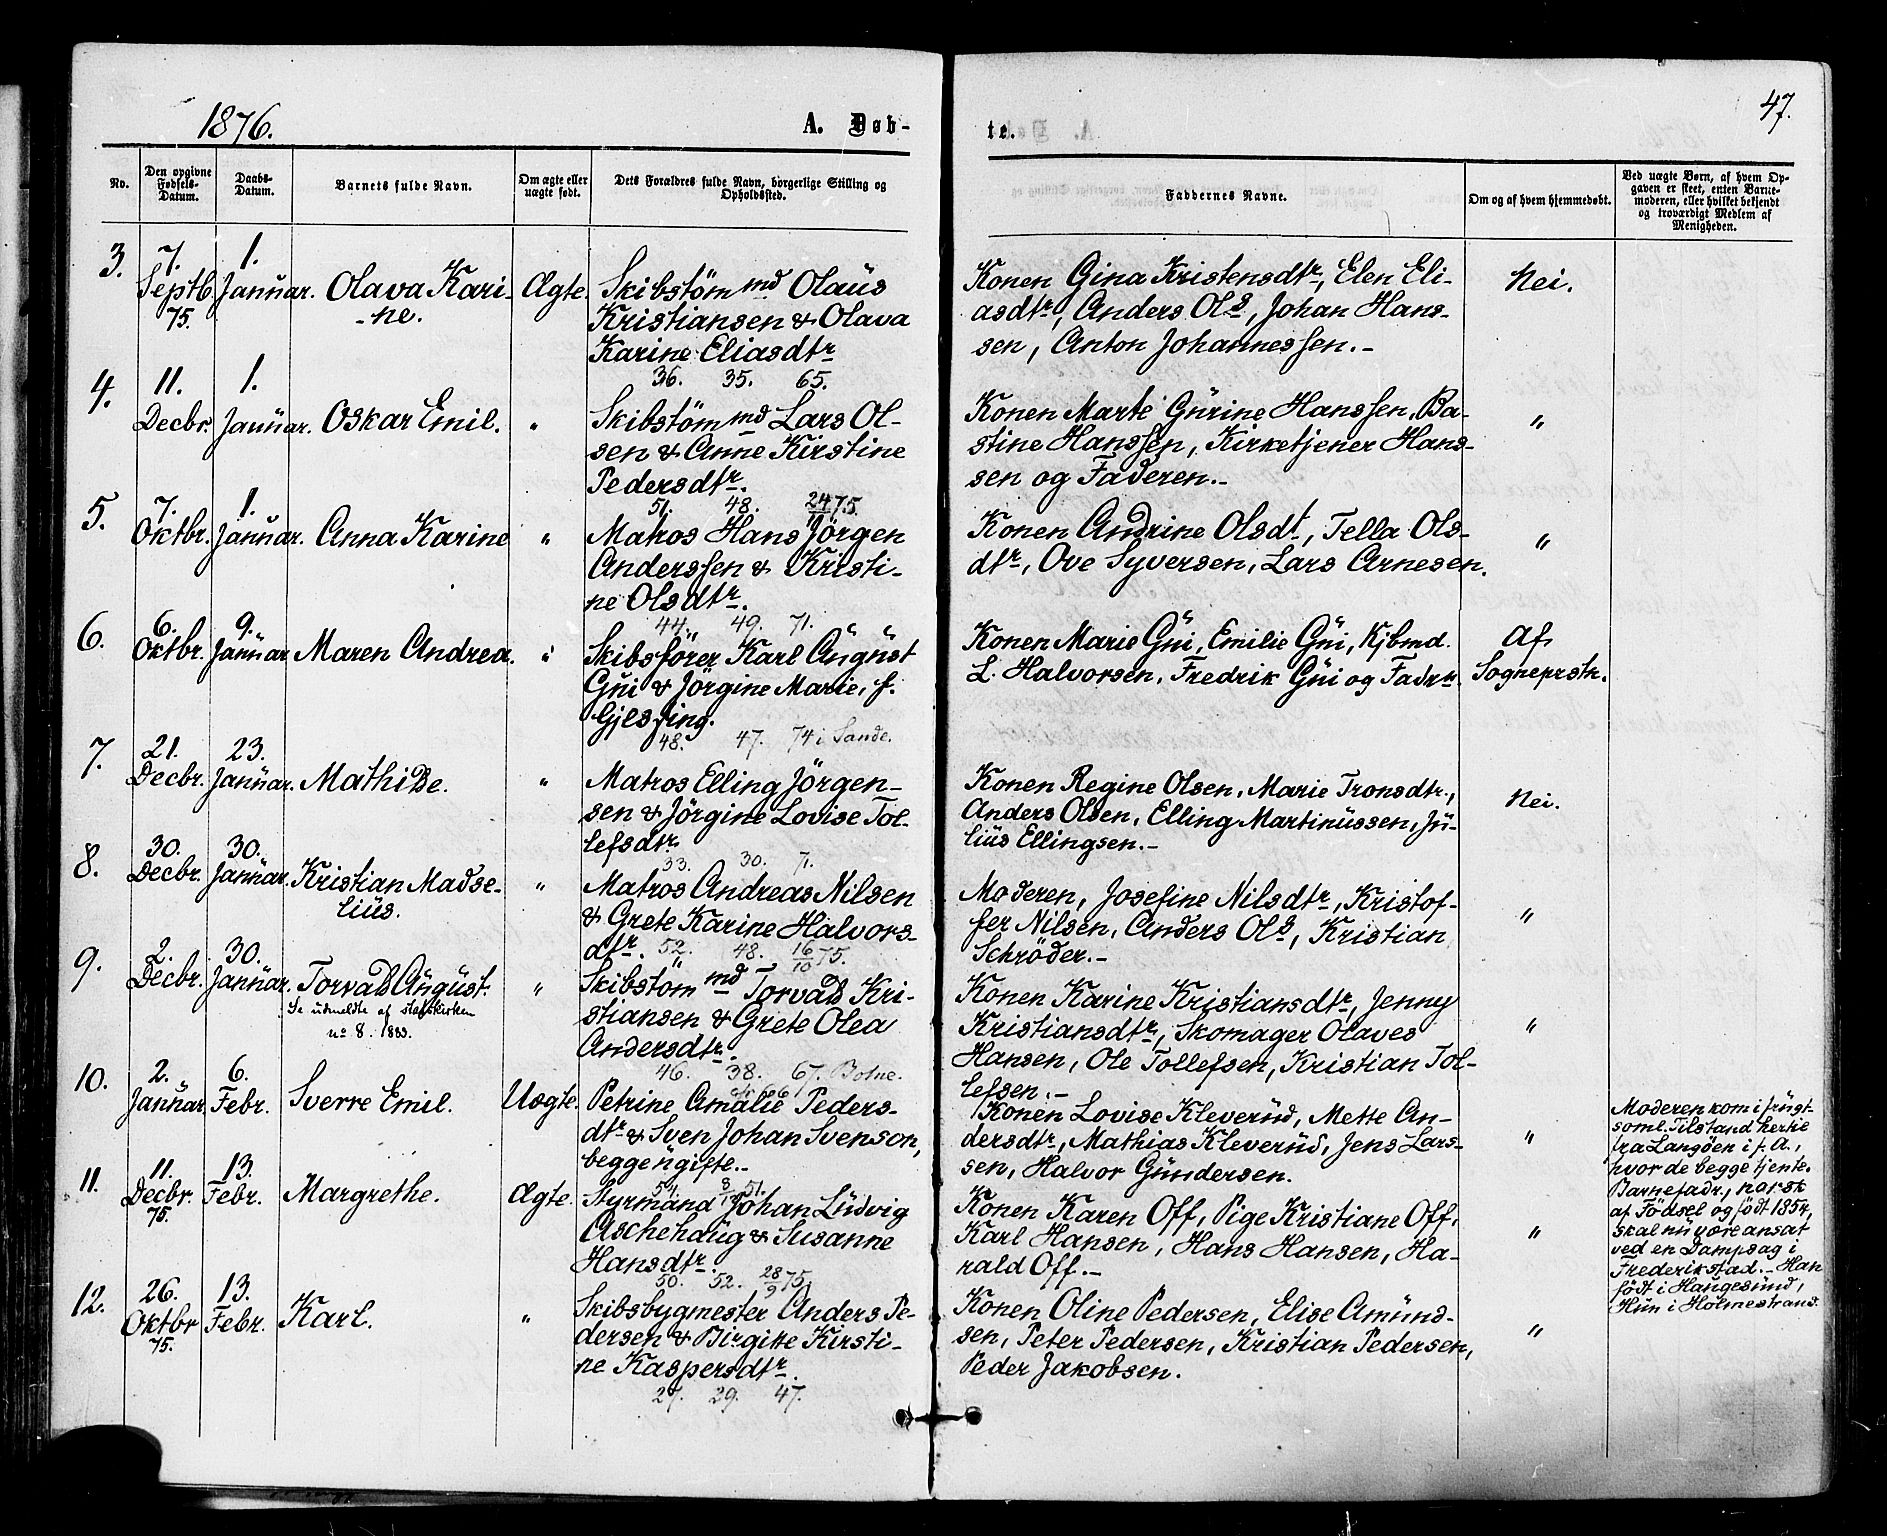 1876.
A. Døb-
te.
47.
No.
Den opgivne Fødsels-Datum.
Daabs-Datum.
Barnets fulde Navn.
Om ægte eller uægte født.
Dets Forældres fulde Navn, borgerlige Stilling og Opholdssted.
Faddernes Navne.
Om og af hvem hjemmedøbt.
Ved uægte Børn, af hvem Op-
gaven er skeet, enten Barne-
moderen, eller hvilket bekjendt
og troværdigt Medlem af
Menigheden.
3.
7.
Septb.
75.
1.
Januar.
Olava Kari-
-ne.
Ægte.
Skibstömmd Olaus
Kristiansen & Olava
Karine Eliasdtr
36. 35. 65.
Konen Gina Kristensdtr, Elen Eli-
asdtr, Anders Ols, Johan Hans-
sen, Anton Johannessen.-
Nei.
4.
11.
Decbr.
1.
Januar.
Oskar Emil.
"
Skibstömmd Lars Ol-
sen & Anne Kirstine
Pedersdtr.
51. 48. 24/11 75.
Konen Marte Gurine Hanssen, Ba-
stine Hanssen, Kirketjener Hans-
sen og Faderen.-
"
5.
7.
Oktbr.
1.
Januar.
Anna Karine
"
Matros Hans Jörgen
Anderssen & Kristi-
ne Olsdtr.
44. 49. 71.
Konen Andrine Olsdt., Tella Ols-
dtr, Ove Syversen, Lars Arnesen.
"
6.
6.
Oktbr.
9.
Januar
Maren Andrea.
"
Skibsförer Karl August
Gui & Jörgine Marie, f.
Gjessing.
48. 47. 74 i Sande.
Konen Marie Gui, Emilie Gui, Kjbmd.
L. Halvorsen, Fredrik Gui og Fadrn.
Af
Sogneprstn.
7.
21.
Decbr.
23.
Januar.
Mathilde.
"
Matros Elling Jörgen-
sen & Jörgine Lovise Tol-
lefsdtr.
33. 30. 71.
Konen Regine Olsen, Marie Tronsdtr.,
Anders Olsen, Elling Martinussen, Ju-
lius Ellingsen.-
Nei.
8.
30.
Decbr.
30.
Januar.
Kristian Madse-
lius.
"
Matros Andreas Nilsen
& Grete Karine Halvors-
dtr. 52. 48. 16/10 75.
Moderen, Josefine Nilsdtr, Kristof-
fer Nilsen, Anders Ols, Kristian
Schröder.-
"
9.
2.
Decbr.
30.
Januar.
Torvald August.
Se udmeldte af statskirken
no 8. 1883.
"
Skibstömmd Torvald Kri-
stiansen & Grete Olea
Andersdtr.
46. 38. 67. Botne.
Konen Karine Kristiansdtr, Jenny
Kristiansdtr, Skomager Olaves
Hansen, Ole Tollefsen, Kristian Tol-
lefsen.-
"
10.
2.
Januar
6.
Febr.
Sverre Emil.
Uægte.
Petrine Amalie Peders-
dtr & Sven Johan Svenson,
begge ugifte.-
54. 8/1 51.
Konen Lovise Kleverud, Mette An-
dersdtr, Mathias Kleverud, Jens Lars-
sen, Halvor Gundersen.
"
Moderen kom i frugt-
soml. Tilstand hertil
fra Langöen i f. A.,
hvor de begge tjente.
Barnefadr., norsk
af Födsel og födt 1854,
skal nu være ansat
ved en Dampsag i
Frederikstad.- Han
födt i Haugesund,
Hun i Holmestrand.
11.
11.
Decbr.
75.
13.
Febr.
Margrethe.
Ægte.
Styrmand Johan Ludvig
Aschehaug & Susanne
Hansdtr.
50. 52. 28/9 75.
Konen Karen Off, Pige Kristiane Off,
Karl Hansen, Hans Hansen, Ha-
rald Off.-
"
12.
26.
Oktbr
75.
13.
Febr.
Karl.
"
Skibsbygmester Anders Pe-
dersen & Birgitte Kirsti-
ne Kaspersdtr.
27. 29. 47.
Konen Oline Pedersen, Elise Amund-
sen, Peter Pedersen, Kristian Pedersen,
Peder Jakobsen.
"